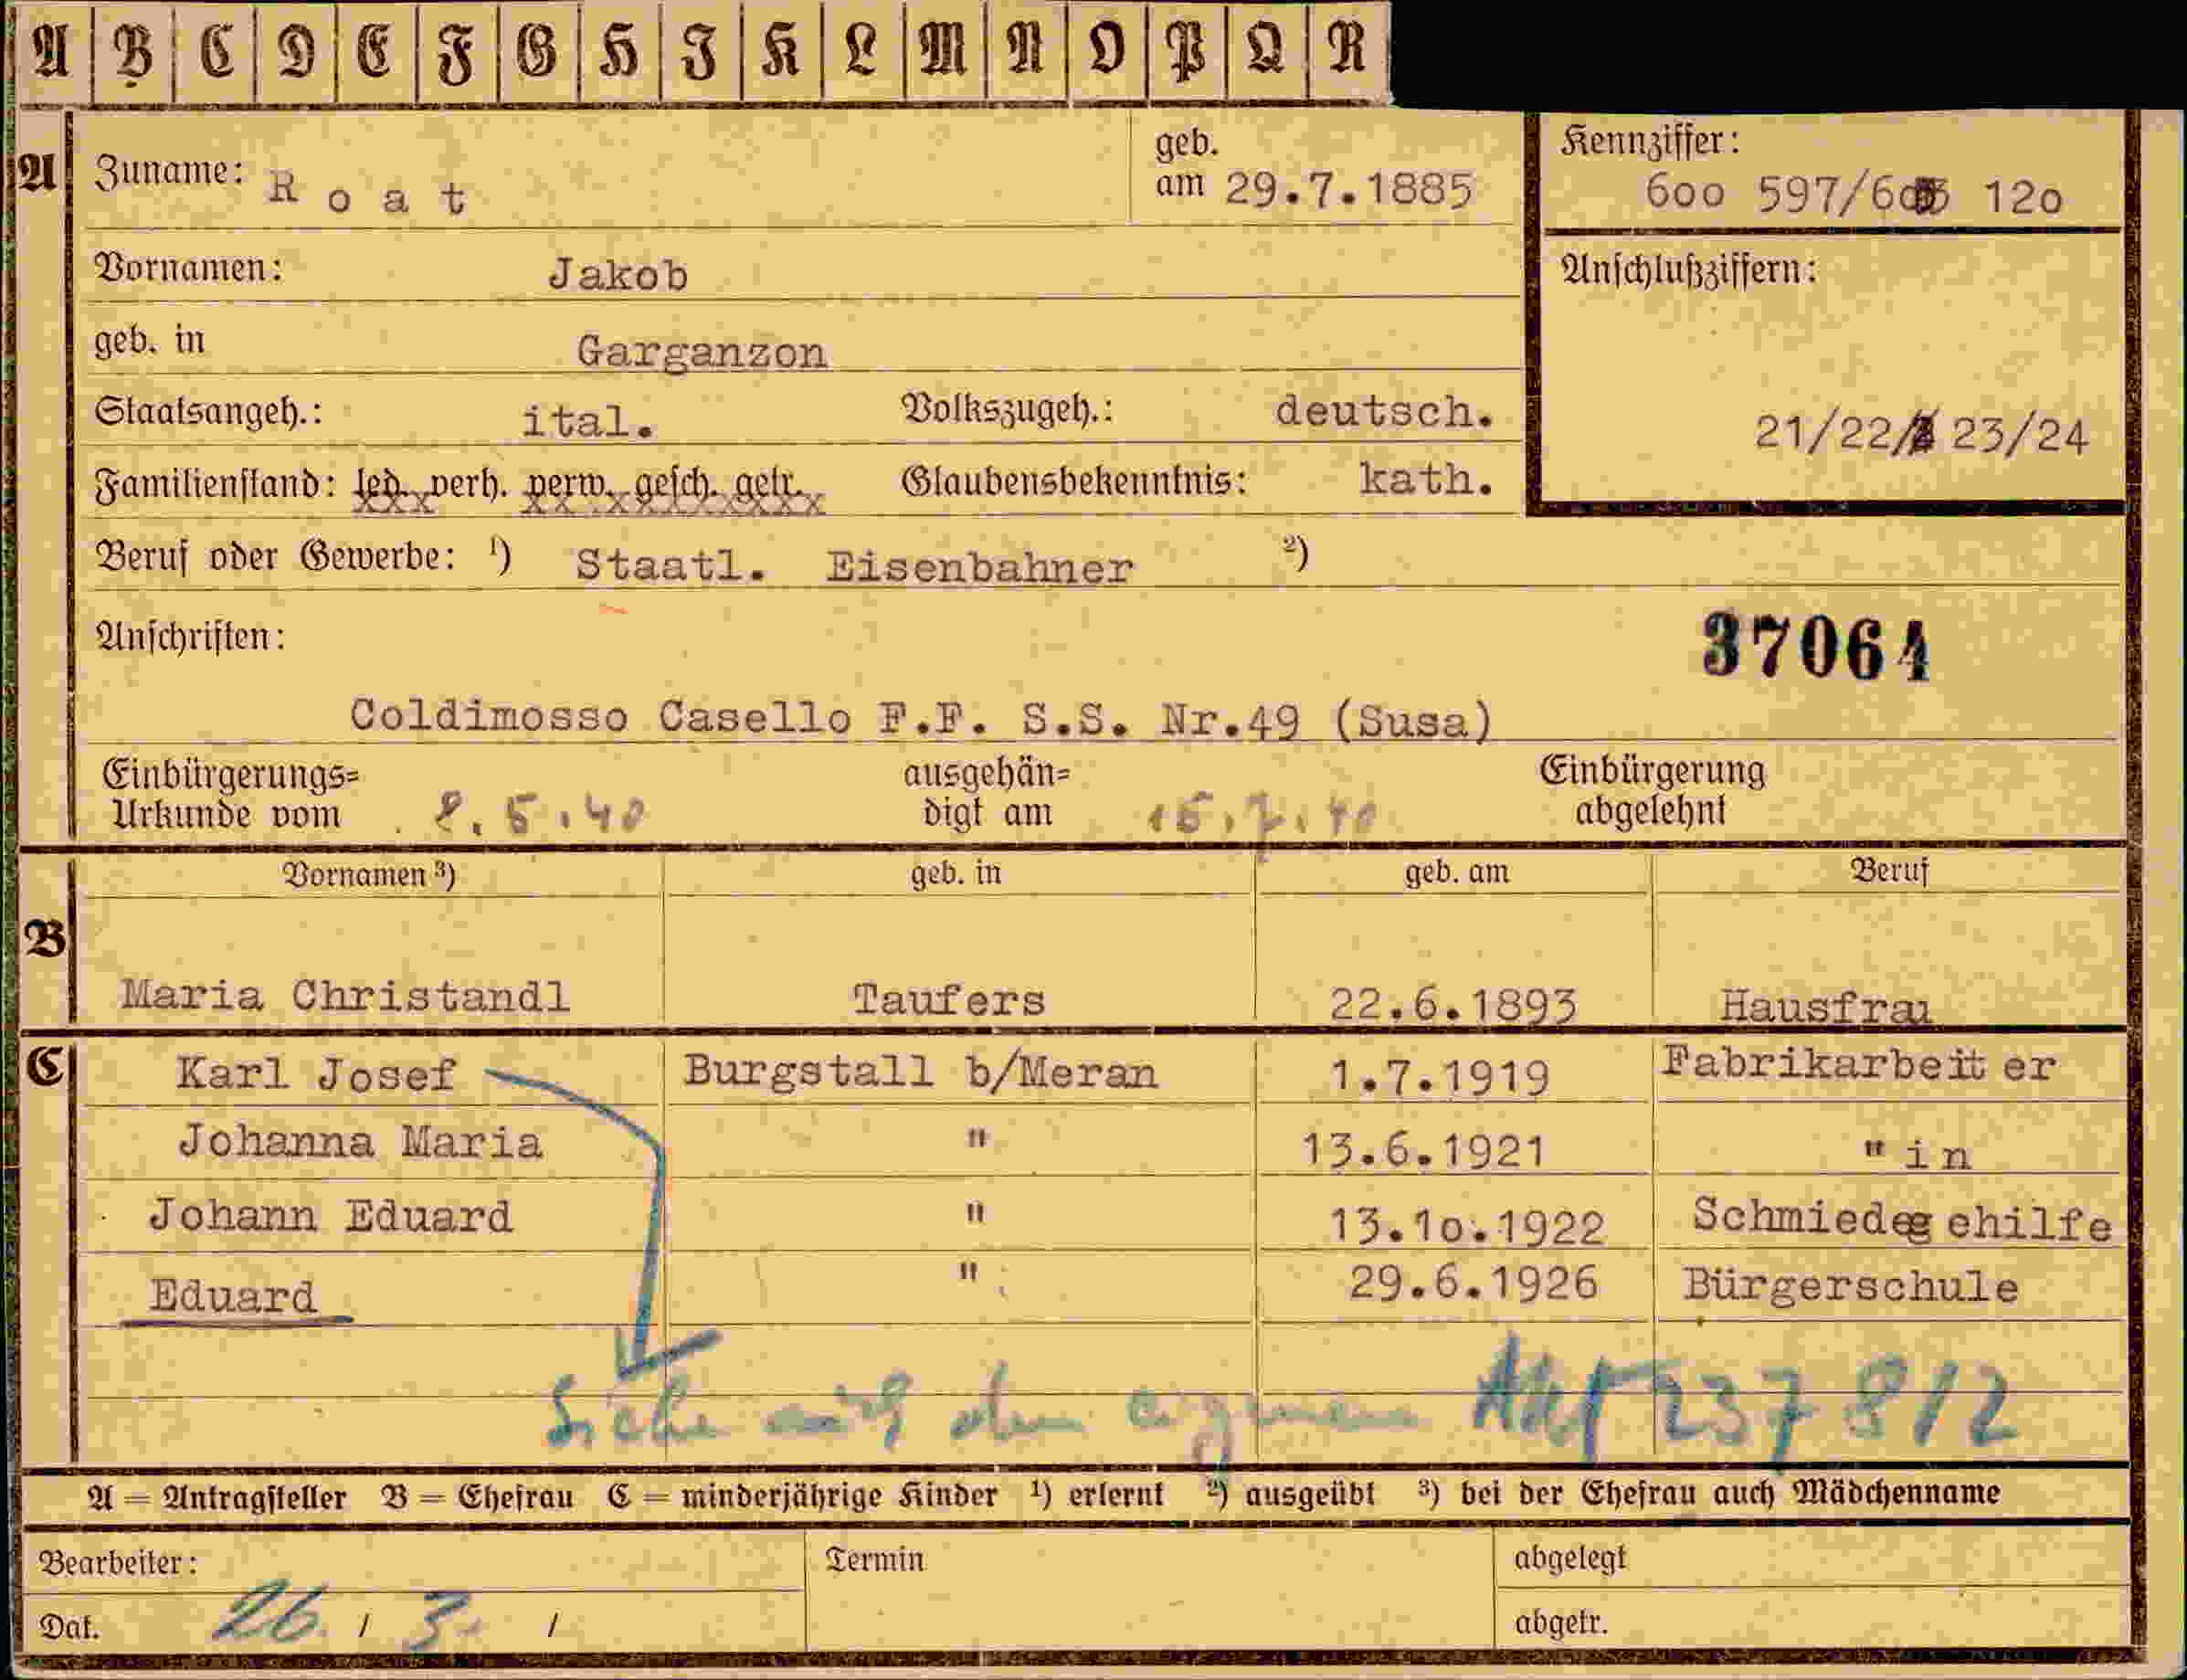 A B C D E F G H I K L M N O P Q R
A Zuname: Roat geb. am 29.7.1885
Kennziffer: 600 597/603 120
Vornamen: Jakob
Anschlußziffern:
geb. in Garganzon
Staatsangeh.: ital. Volkszugeh.: deutsch.
21/22/ 23/24
Familienstand: led. verh. verw. gesch. getr. Glaubensbekenntnis: kath.
Beruf oder Gewerbe: ¹) Staatl. Eisenbahner ²)
Anschriften:
37064
Coldimosso Casello F.F. S.S. Nr.49 (Susa)
Einbürgerungs= ausgehän= Einbürgerung
Urkunde vom 8.5.40 digt am 15.7.40 abgelehnt
Vornamen ³) geb. in geb. am Beruf
B
Maria Christandl Taufers 22.6.1893 Hausfrau
C Karl Josef Burgstall b/Meran 1.7.1919 Fabrikarbeiter
Johanna Maria " 13.6.1921 " in
Johann Eduard " 13.10.1922 Schmiedegehilfe
Eduard " 29.6.1926 Bürgerschule
Siehe auch den eigenen Akt 237 812
A = Antragsteller B = Ehefrau C = minderjährige Kinder ¹) erlernt ²) ausgeübt ³) bei der Ehefrau auch Mädchenname
Bearbeiter: Termin abgelegt
Dat. 26. / 3. / abgetr.